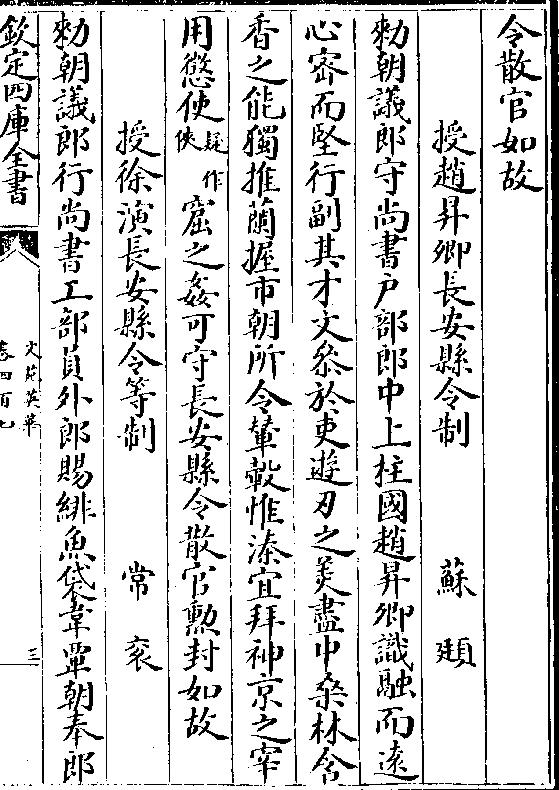 令散官如故
授趙昇卿長安縣令制　蘇頲
勅朝議郎守尚書户部郎中上柱國趙昇卿識融而遠
心宻而堅行副其才文叅於吏遊刃之美盡中桑林含
香之能獨推蘭握市朝所令輦轂惟湊宜拜神京之宰
用懲使疑作俠窟之姦可守長安縣令散官勲封如故
授徐演長安縣令等制　常衮
勅朝議郎行尚書工部員外郎賜緋魚袋韋單朝奉郎
欽定四庫全書
文苑英華
卷四百七
三